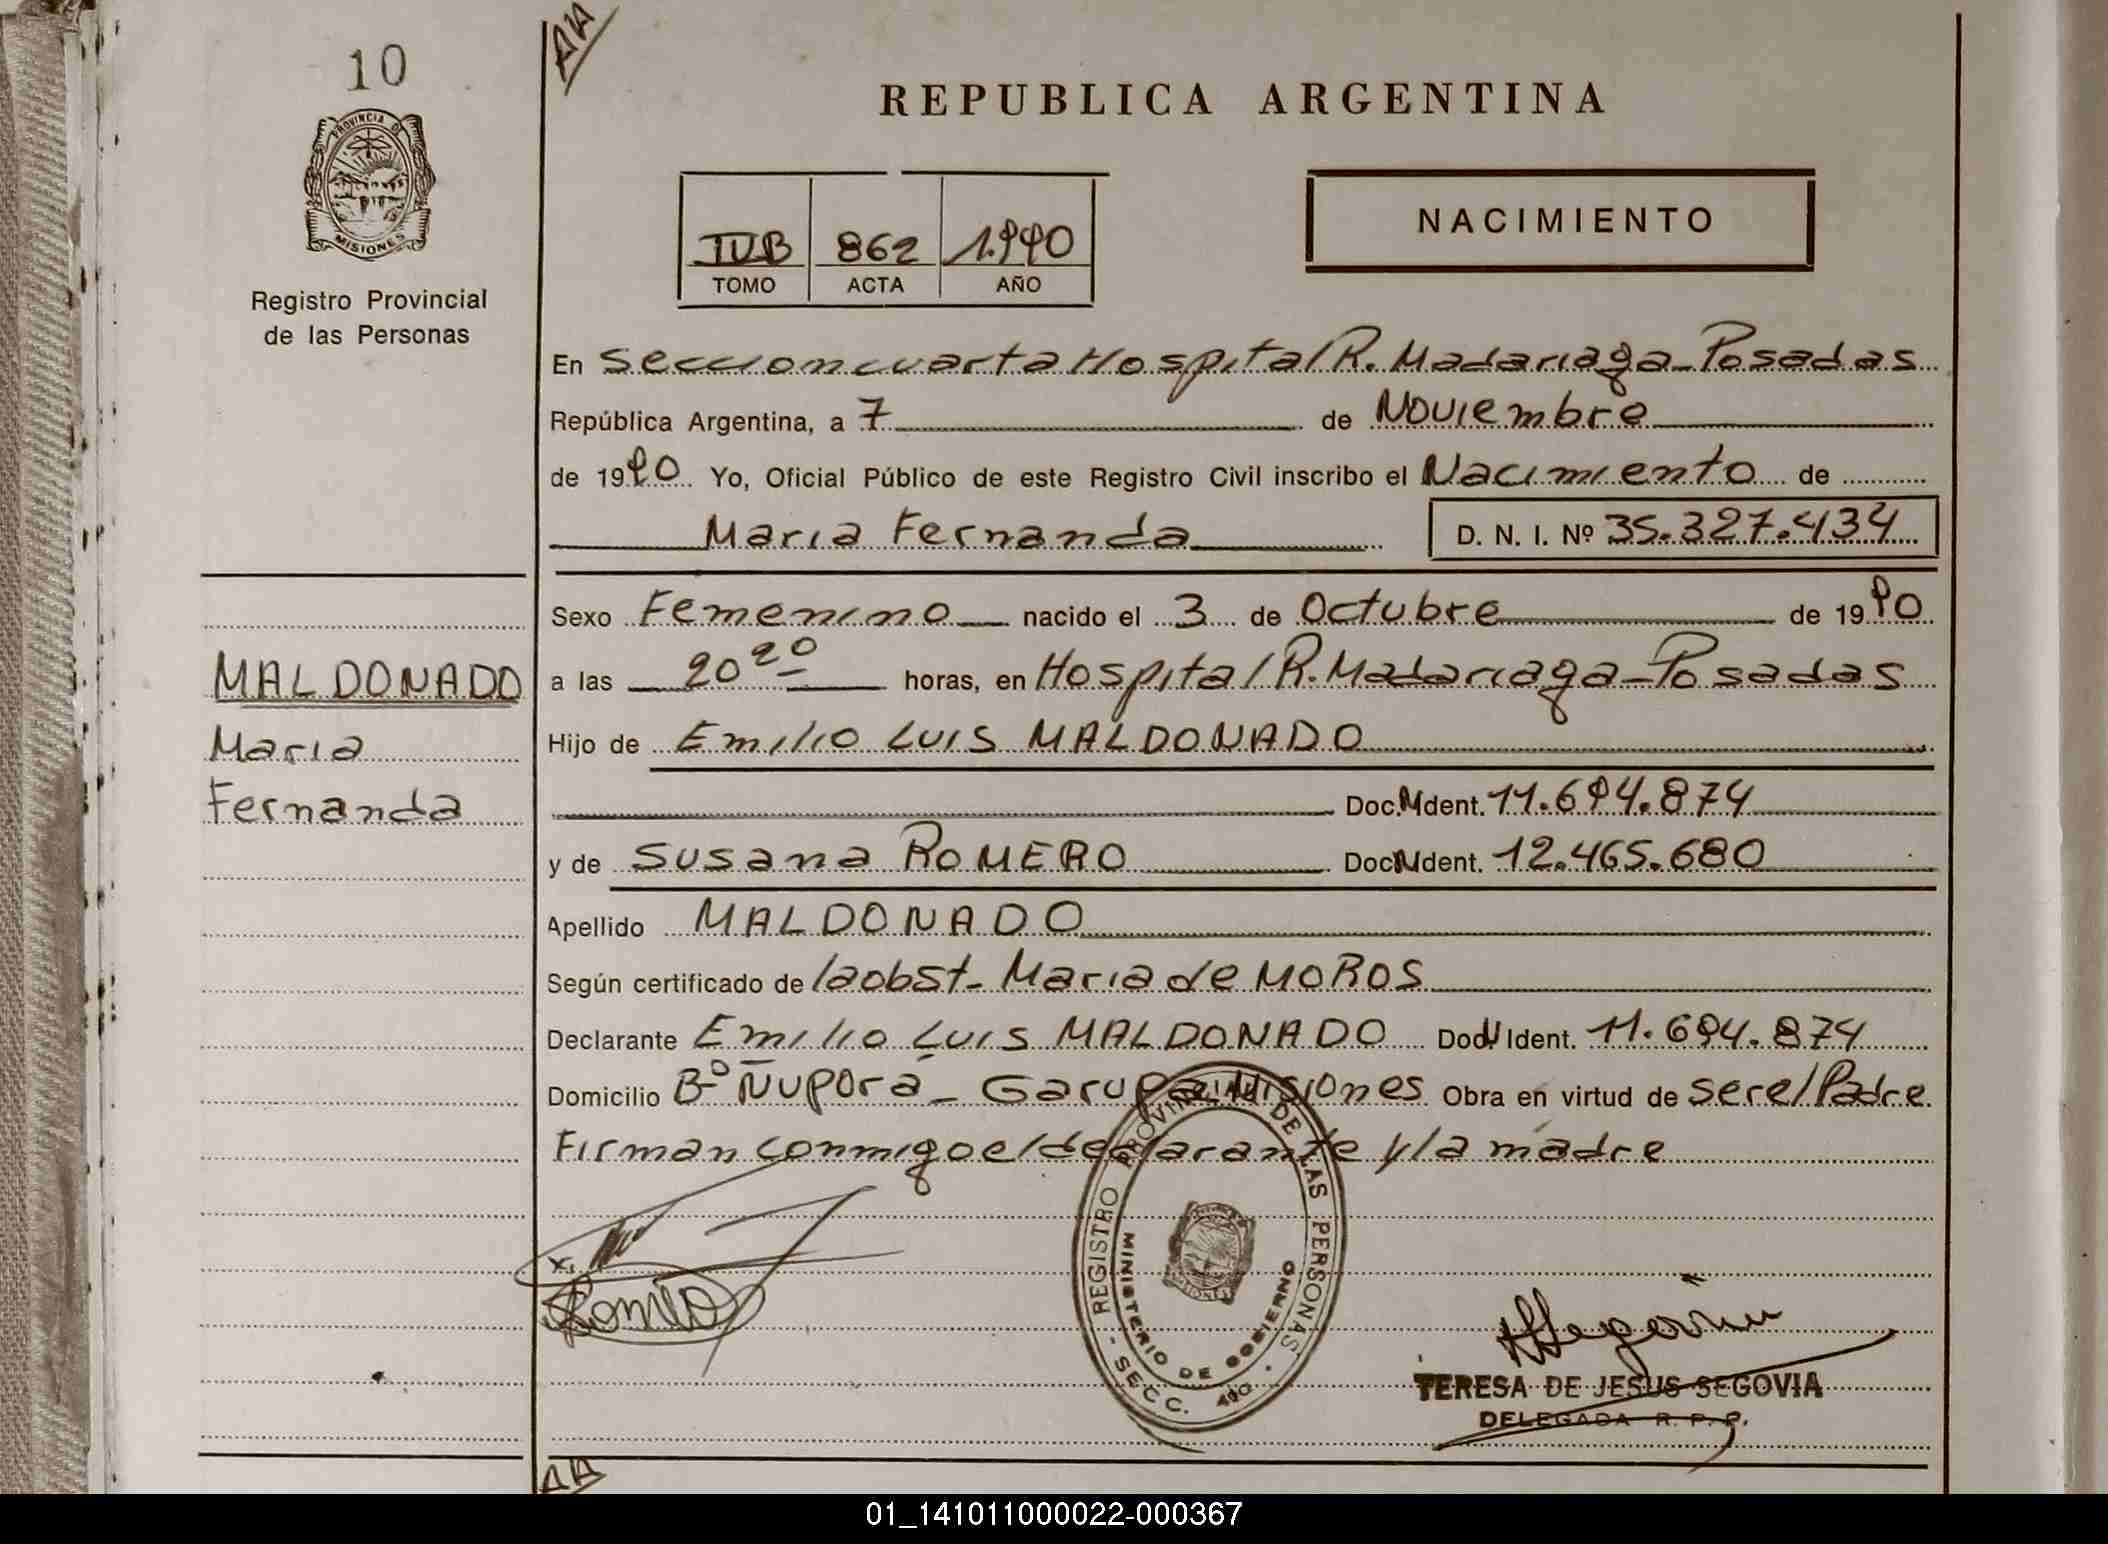 10
PROVINCIA DE
MISIONES
Registro Provincial
de las Personas
MALDONADO
Maria
Fernanda
REPUBLICA ARGENTINA
IVB 862 1.990
TOMO ACTA AÑO
NACIMIENTO
En Seccion cuarta Hospital R. Madariaga - Posadas
República Argentina, a 7 de Noviembre
de 1990 Yo, Oficial Público de este Registro Civil inscribo el Nacimiento de
Maria Fernanda D. N. I. Nº 35.327.434
Sexo Femenino nacido el 3 de Octubre de 1990
a las 20 20 horas, en Hospital R. Madariaga - Posadas
Hijo de Emilio Luis MALDONADO
Doc. N Ident. 11.694.874
y de Susana ROMERO Doc. N Ident. 12.465.680
Apellido MALDONADO
Según certificado de la obst - Maria de MOROS
Declarante Emilio Luis MALDONADO Doc. N Ident. 11.694.874
Domicilio Bº Ñuporá - Garupa Misiones Obra en virtud de ser el Padre
Firman conmigo el declarante y la madre
REGISTRO PROVINCIAL DE LAS PERSONAS
MINISTERIO DE GOBIERNO
SECC. 4to
TERESA DE JESUS SEGOVIA
DELEGADA R. P. P.
01_141011000022-000367